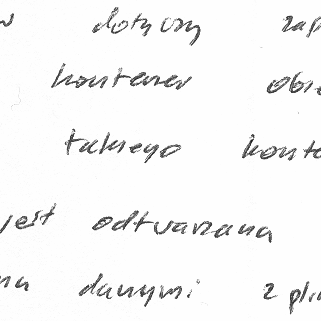 dotyczy zap
kontener obra
takiego konte
jest odtwarzana
na danymi z pli